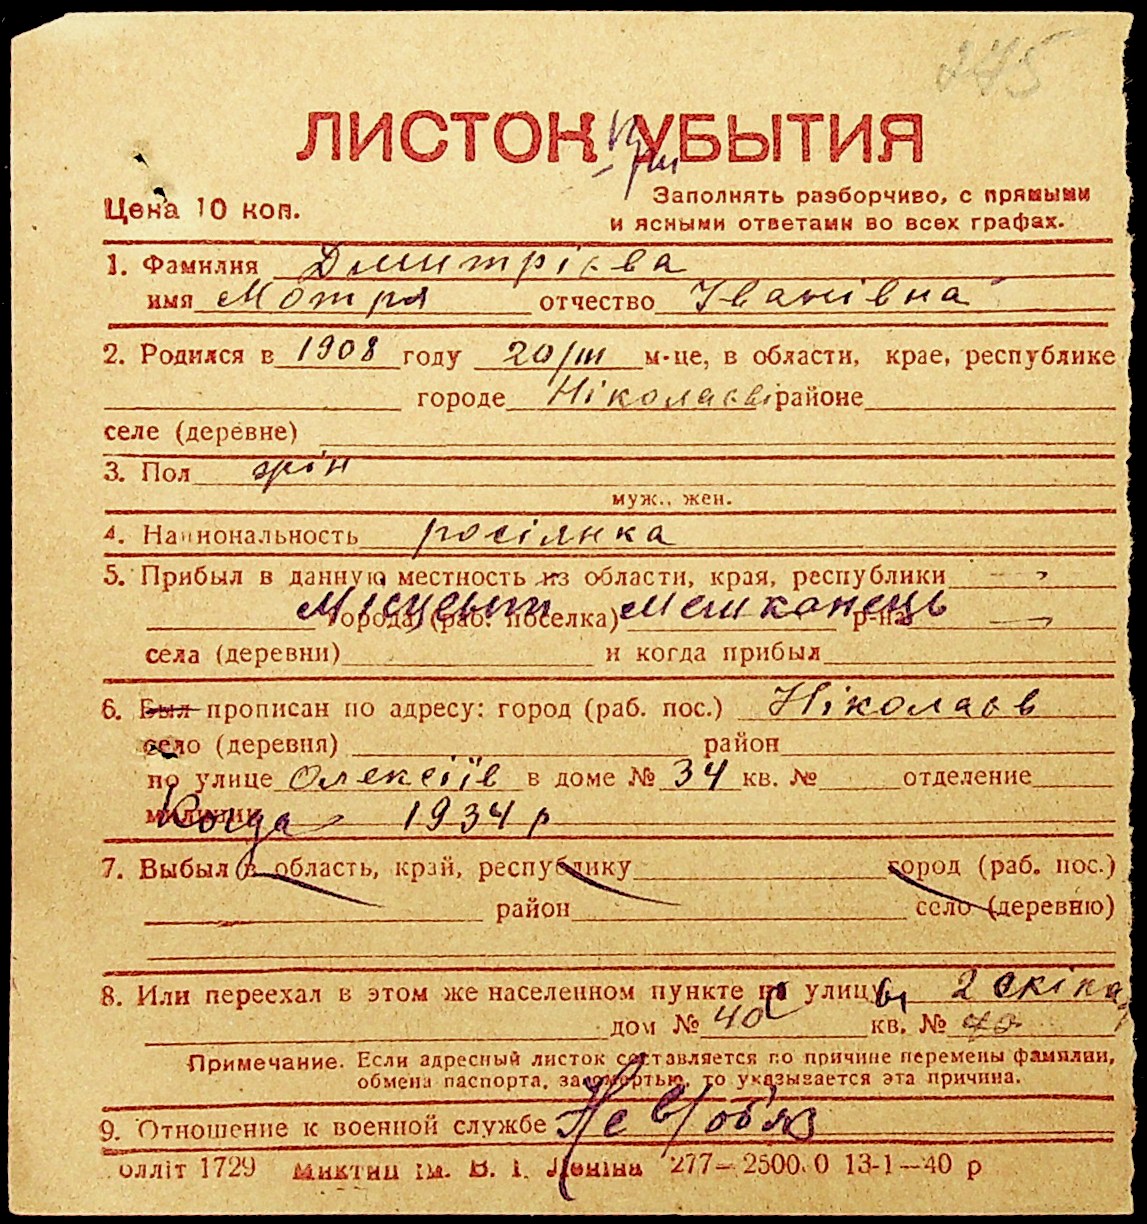 275
ЛИСТОК УБЫТИЯ
Цена 10 коп.
Заполнять разборчиво, с прямыми
и ясными ответами во всех графах.
1. Фамилия Дмитрієва
имя Мотря отчество Іванівна
2. Родился в 1908 году 20/III м-це, в области, крае, республике
городе Ніколаєві районе
селе (деревне)
3. Пол жін
муж., жен.
4. Национальность росіянка
5. Прибыл в данную местность из области, края, республики
Місцевий мешканець
города (раб. поселка) р-на
села (деревни) и когда прибыл
6. Был прописан по адресу: город (раб. пос.) Ніколаєв
село (деревня) район
по улице Олексіїв в доме № 34 кв. № отделение
милиции Когда 1934 р
7. Выбыл в область, край, республику город (раб. пос.)
район село (деревню)
8. Или переехал в этом же населенном пункте на улицу 2 Екіпа
дом № 40 кв. №
Примечание. Если адресный листок составляется по причине перемены фамилии,
обмена паспорта, за смертью, то указывается эта причина.
9. Отношение к военной службе Не в/об'яз
олліт 1729 ім. В. І. Леніна 277—2500.0 13-1—40 р